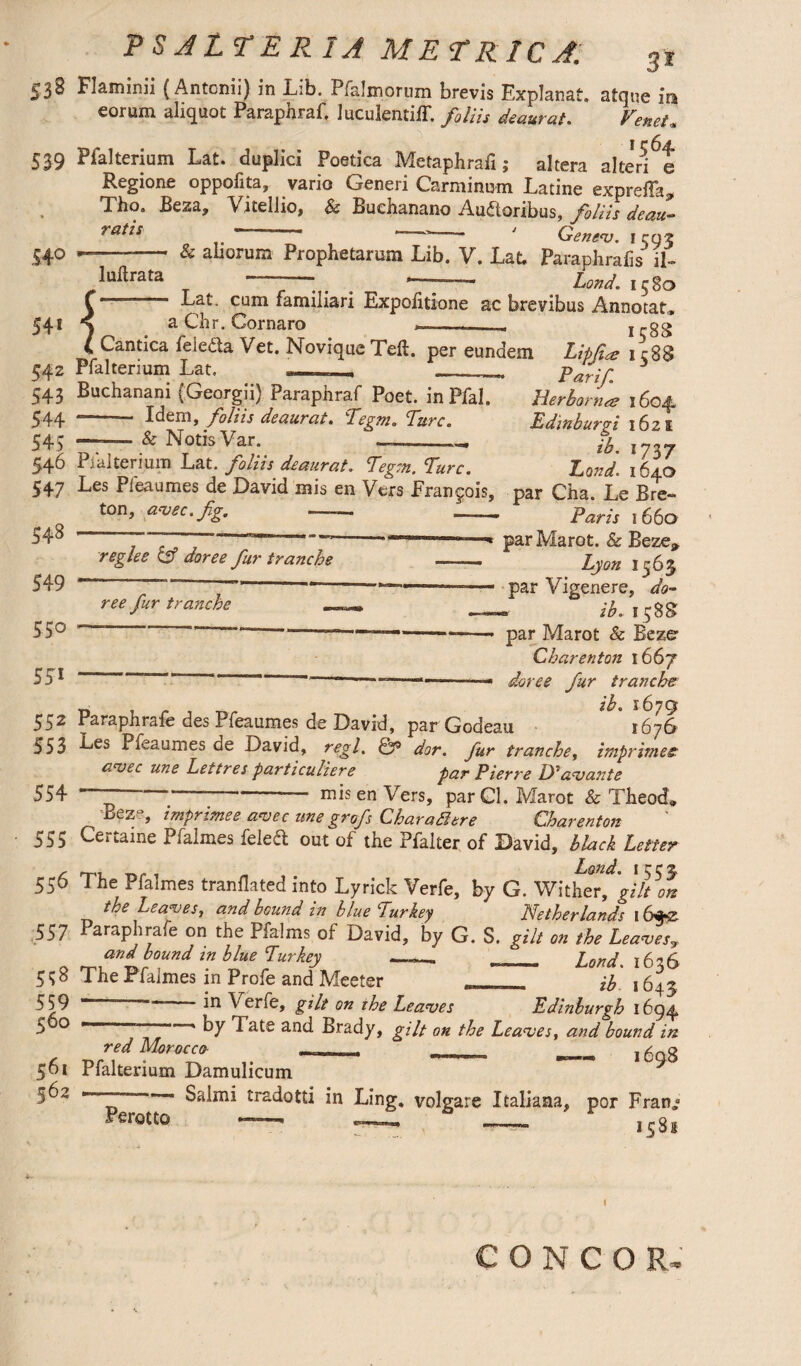 PSALTERIA METRICA. 31
538 Flaminii (Antonii) in Lib. Pſalmorum brevis Explanat. atque in
eorum aliquot Paraphraſ. luculentiſſ. foliis deaurat. Venet.
1564
539 Pſalterium Lat. duplici Poetica Metaphraſi; altera alteri e
Regione oppoſita, vario Generi Carminum Latine expreſſa,
Tho. Beza, Vitellio, & Buchanano Auctoribus, foliis deau-
ratis —— —— Genev. 1593
540 —— & aliorum Prophetarum Lib. V. Lat. Paraphraſis il-
luſtrata —— —— Lond. 1580
541 { —— Lat. cum familiari Expoſitione ac brevibus Annotat.
a Chr. Cornaro —— 1588
Cantica ſelecta Vet. Novique Teſt. per eundem Lipſiæ 1588
542 Pſalterium Lat. —— —— Pariſ.
543 Buchanani (Georgii) Paraphraſ Poet. in Pſal. Herbornæ 1604
544 —— Idem, foliis deaurat. Tegm. Turc. Edinburgi 1621
545 —— & Notis Var. —— ib. 1737
546 Pſalterium Lat. foliis deaurat. Tegm. Turc. Lond. 1640
547 Les Pſeaumes de David mis en Vers François, par Cha. Le Bre-
ton, avec. fig. —— —— Paris 1660
548 —— par Marot. & Beze,
reglee & doree ſur tranche —— Lyon 1563
549 —— par Vigenere, do-
ree ſur tranche —— —— ib. 1588
550 —— par Marot & Beze
Charenton 1667
551 —— doree ſur tranche
ib. 1679
552 Paraphraſe des Pſeaumes de David, par Godeau 1676
553 Les Pſeaumes de David, regl. & dor. ſur tranche, imprimee
avec une Lettres particuliere par Pierre D'avante
554 —— mis en Vers, par Cl. Marot & Theod.
Beze, imprimee avec une groſs Charactere Charenton
555 Certaine Pſalmes ſelect out of the Pſalter of David, black Letter
Lond. 1553
556 The Pſalmes tranſlated into Lyrick Verſe, by G. Wither, gilt on
the Leaves, and bound in blue Turkey Netherlands
557 Paraphraſe on the Pſalms of David, by G. S. gilt on the Leaves,
and bound in blue Turkey —— —— Lond. 1636
558 The Pſalmes in Proſe and Meeter —— ib. 1643
559 —— in Verſe, gilt on the Leaves Edinburgh 1694
560 —— by Tate and Brady, gilt on the Leaves, and bound in
red Morocco —— —— —— 1698
561 Pſalterium Damulicum
562 —— Salmi tradotti in Ling. volgare Italiana, por Fran:
Perotto —— —— —— 1581
CONCOR-